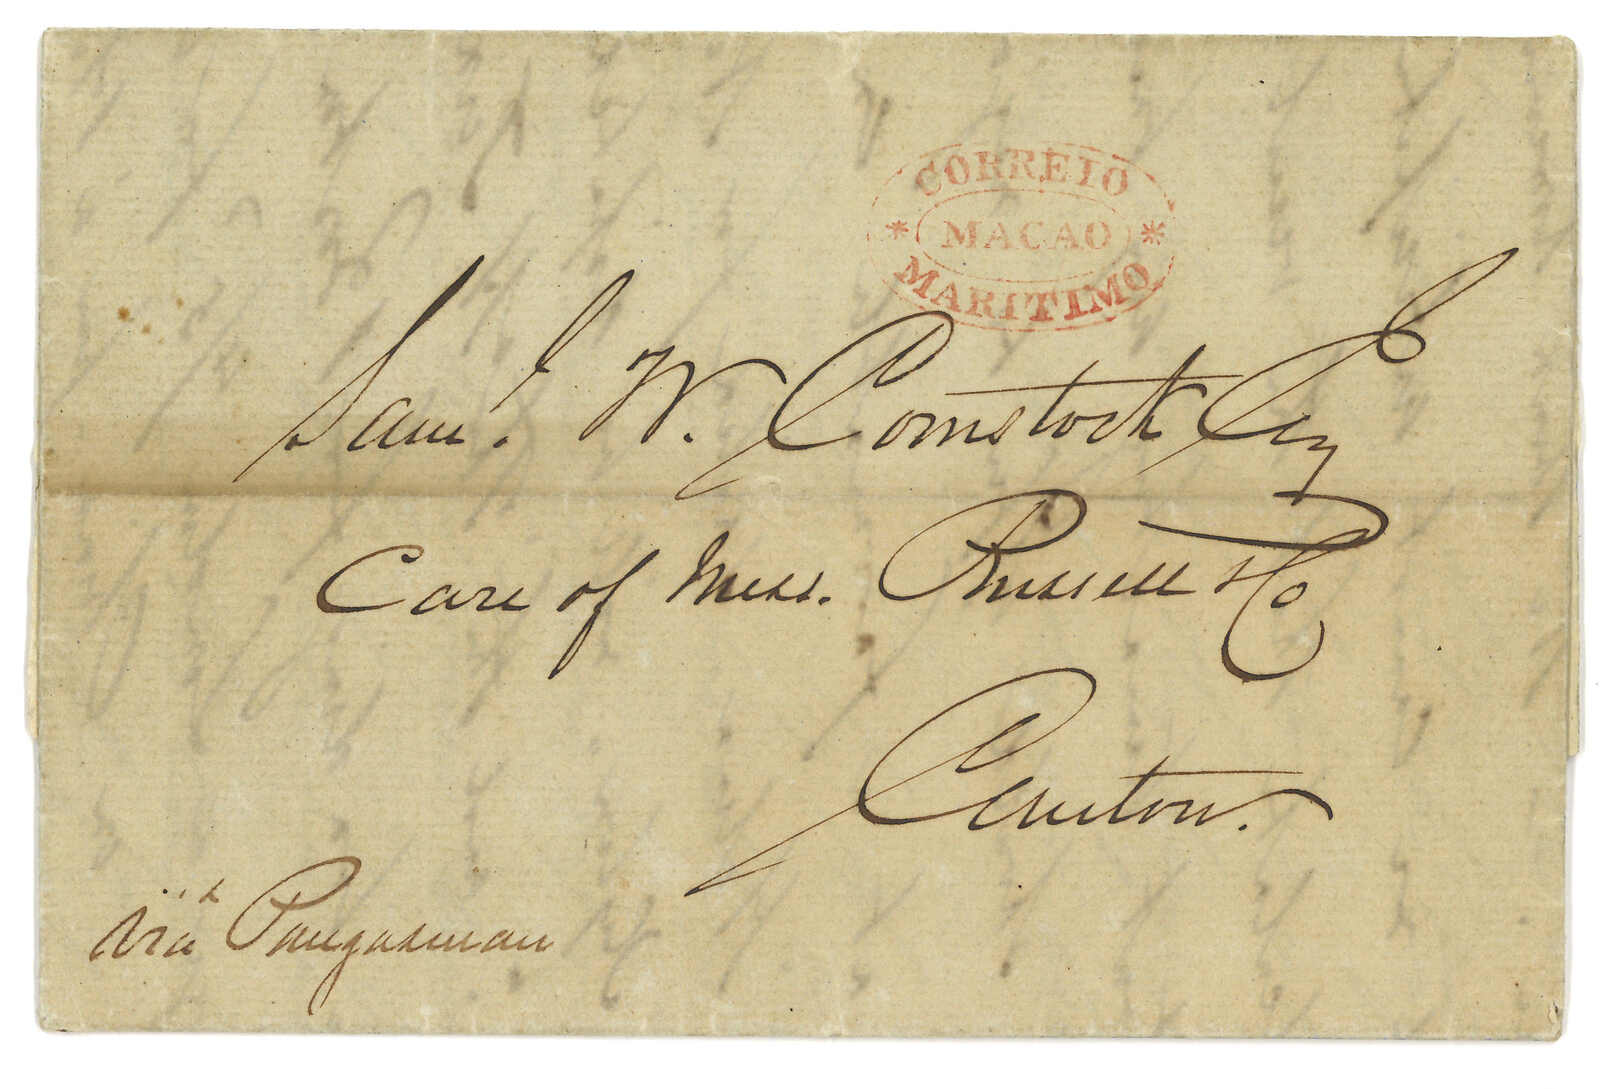 CORREIO
MACAO
MARITIMO
Saml. W. Comstock Esq
Care of Mess. Russell & Co
Canton.
via Pangasinan